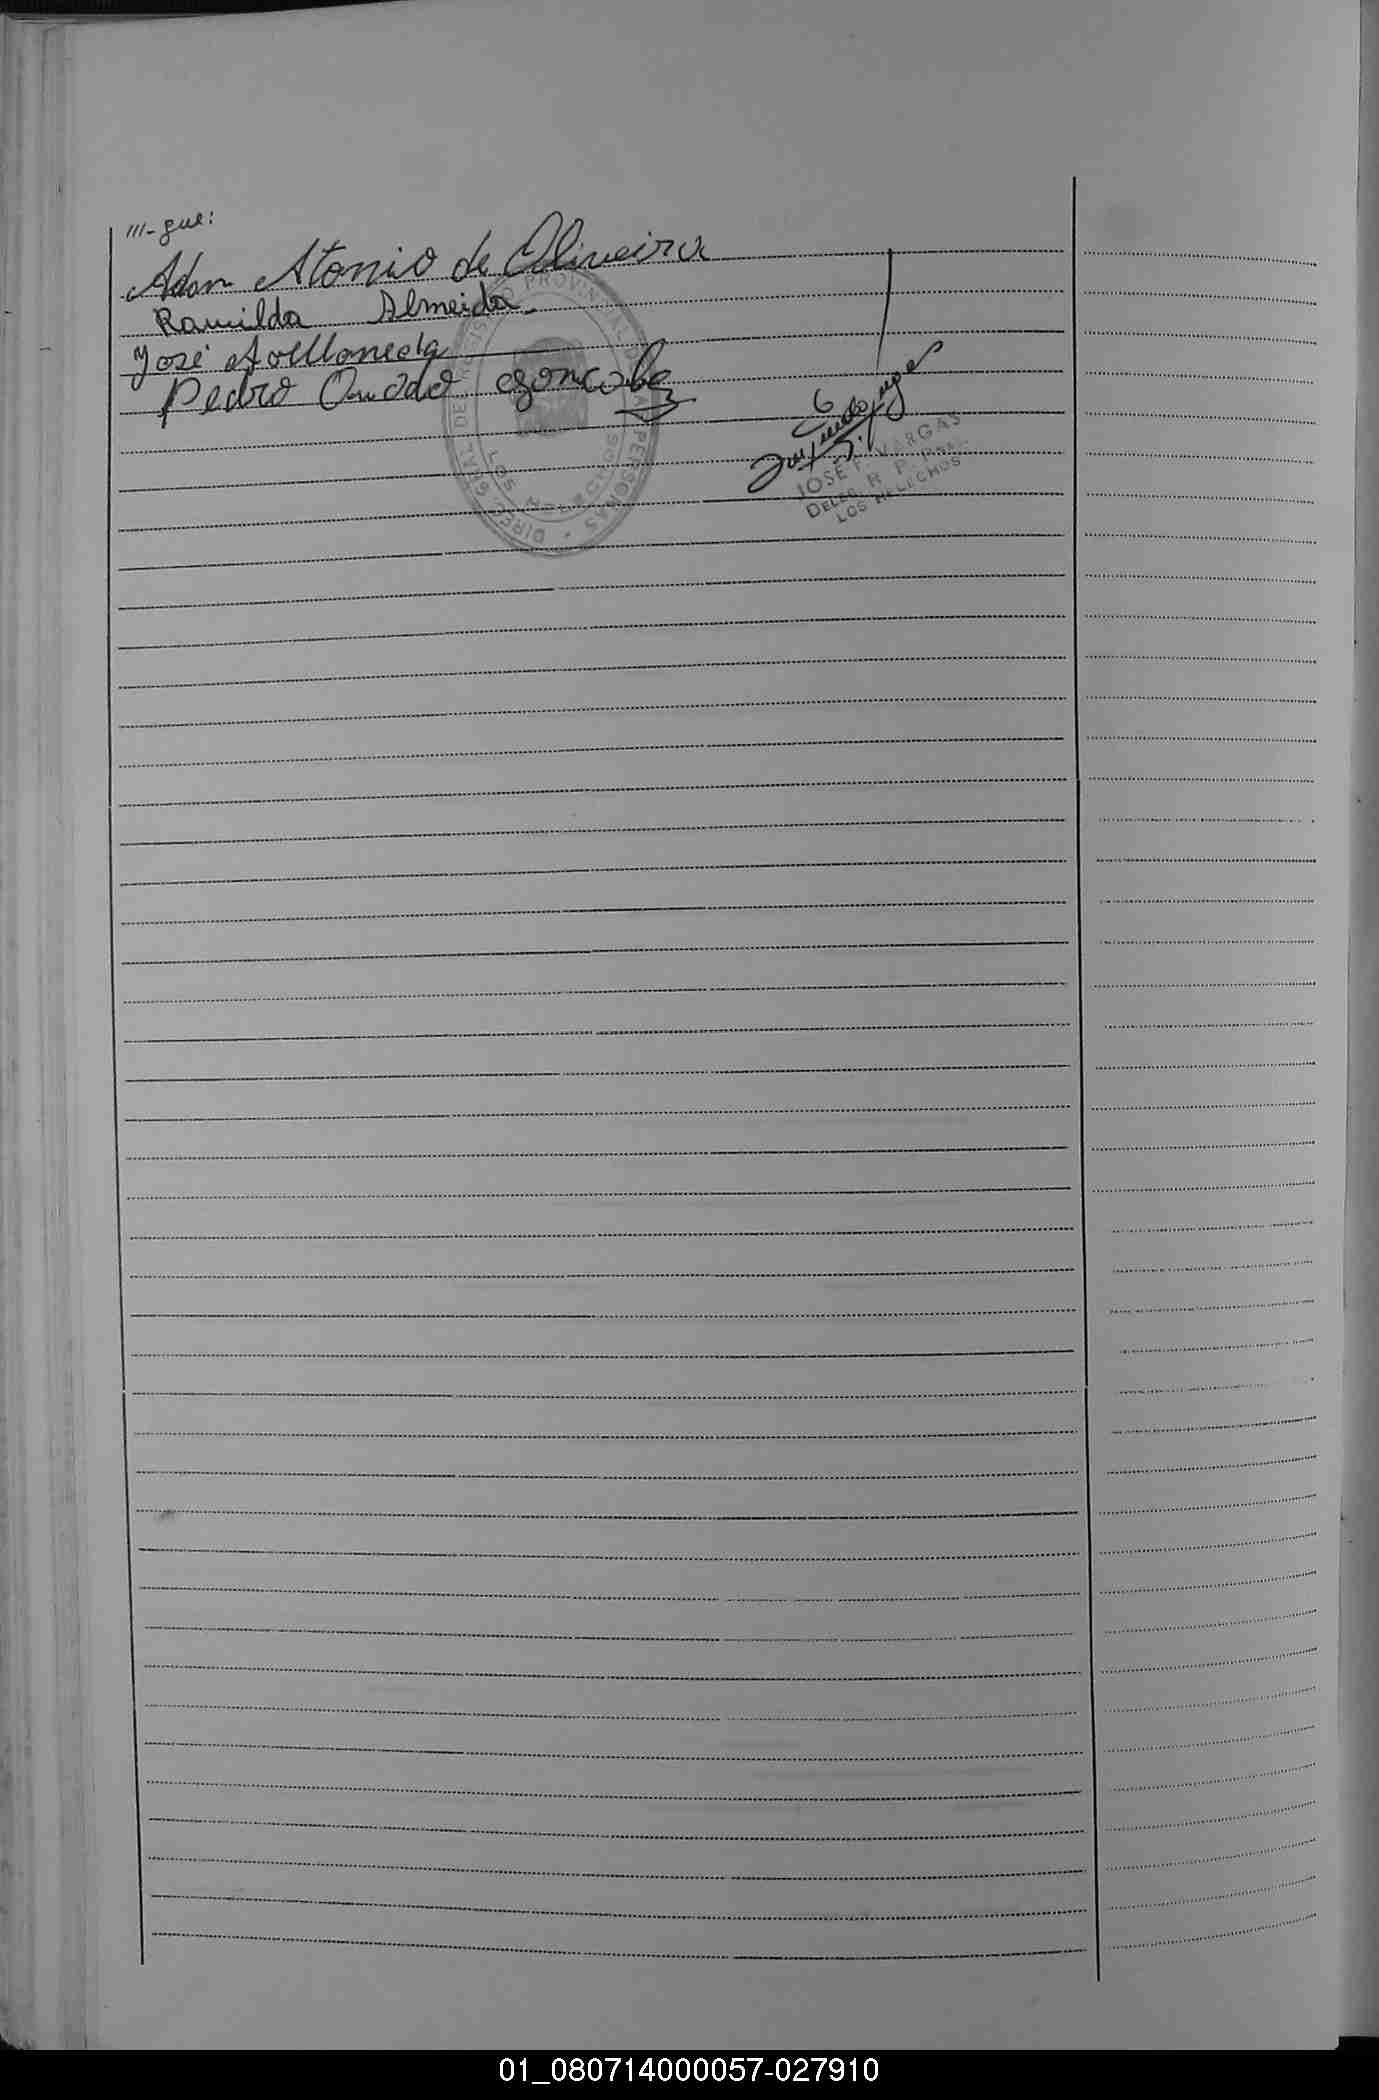 ///-gue:
Adan Atonio de Oliveira
Ramilda Almeida
José Avellaneda
Pedro Amado Gonçalve
DIREC. GRAL. DE REGISTRO PROVINCIAL DE LAS PERSONAS
LOS HELECHOS
JOSE F. VARGAS
DELEG. R. P. Pers.
LOS HELECHOS
01_080714000057-027910